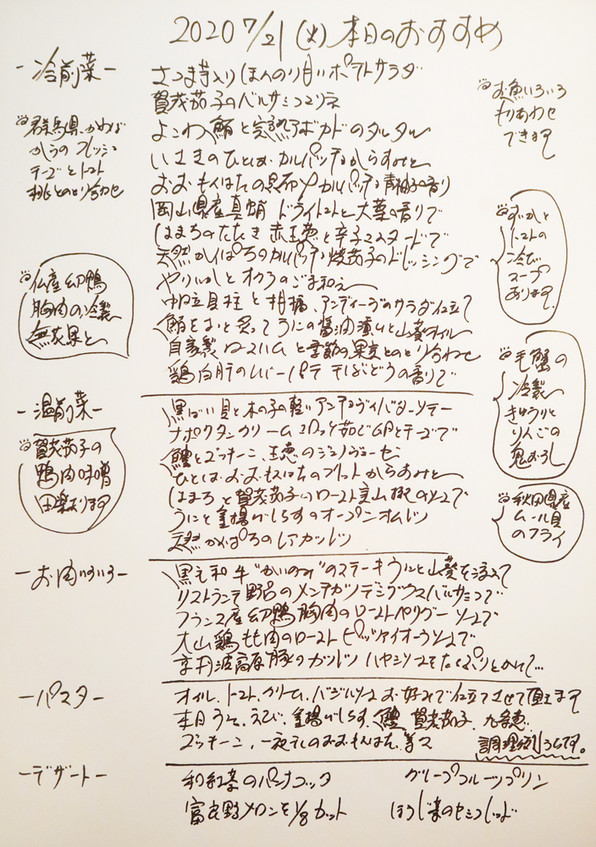 2020 7/21 (火) 本日のおすすめ
-冷前菜-
さつま芋入り ほんのり甘いポテトサラダ
賀茂茄子のバルサミコマリネ
よこわ鮪と完熟アボカドのタルタル
いさきのひとしお カルパッチョ からすみと
おおもんはたの昆布〆カルパッチョ 青柚子の香り
岡山県産真蛸 ドライトマトと大葉の香りで
はまちのたたき 赤玉葱と辛子マスタードで
天然かんぱちのカルパッチョ 焼茄子のドレッシングで
やりいかとオクラのごま和え
帆立貝柱と柑橘、アンディーブのサラダ仕立て
鮪をさっと炙って うにの醤油漬けと山葵オイル
自家製ロースハムと季節の果実とのとり合わせ
鶏白肝のレバーパテ 干しぶどうの香りで
群馬県
フレッシュ
チーズとトマト
桃とのとり合わせ
仏産幼鴨
胸肉の冷製
無花果と
お魚いろいろ
もりあわせ
できます
トマトの
冷たい
スープ
あります
毛蟹の
冷製
きゅうりと
りんごの
鬼おろし
-温前菜-
黒ばい貝と木の子の軽いアンチョヴィバターソテー
ナポリタンクリームコロッケ 茹でたPとチーズで
鱧とズッキーニ、玉葱のジェノベーゼ
ひとしおおおもんはたのフリット からすみと
はまちと賀茂茄子のロースト 実山椒のソースで
うにと釜揚げしらすのオープンオムレツ
天然かんぱちのレアカツレツ
賀茂茄子の
鴨肉味噌
田楽あります
秋田県産
ムール貝
のフライ
-お肉いろいろ-
黒毛和牛"かいのみ"のステーキ うにと山葵を添えて
リストランテ野呂のメンチカツ デミグラスバルサミコで
フランス産幼鴨胸肉のロースト ペリグーソースで
大山鶏もも肉のロースト ピッツァイオーラソースで
京丹波高原豚のカツレツ ハヤシソースをたっぷりとかけて…
-パスタ-
オイル、トマト、クリーム、バジルソース お好みで仕立てさせて頂きます
本日 うに、えび、釜揚げしらす、鱧、賀茂茄子、九条葱、
ズッキーニ、一夜干しのおおもんはた、等々
調理例いろいろです。
-デザート-
和紅茶のパンナコッタ
グレープフルーツプリン
富良野メロンを1/8カット
ほうじ茶のセミフレッド